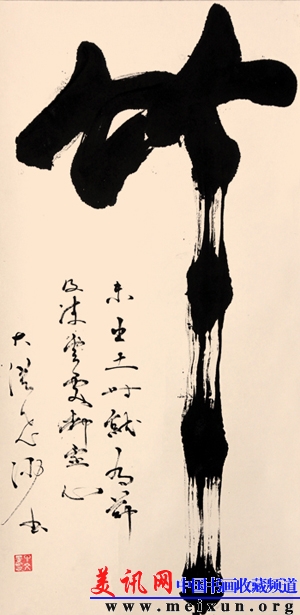 竹
未出土时就有节
及凌雲處却空心
书
美讯网 中国书画收藏频道
www.meixun.org